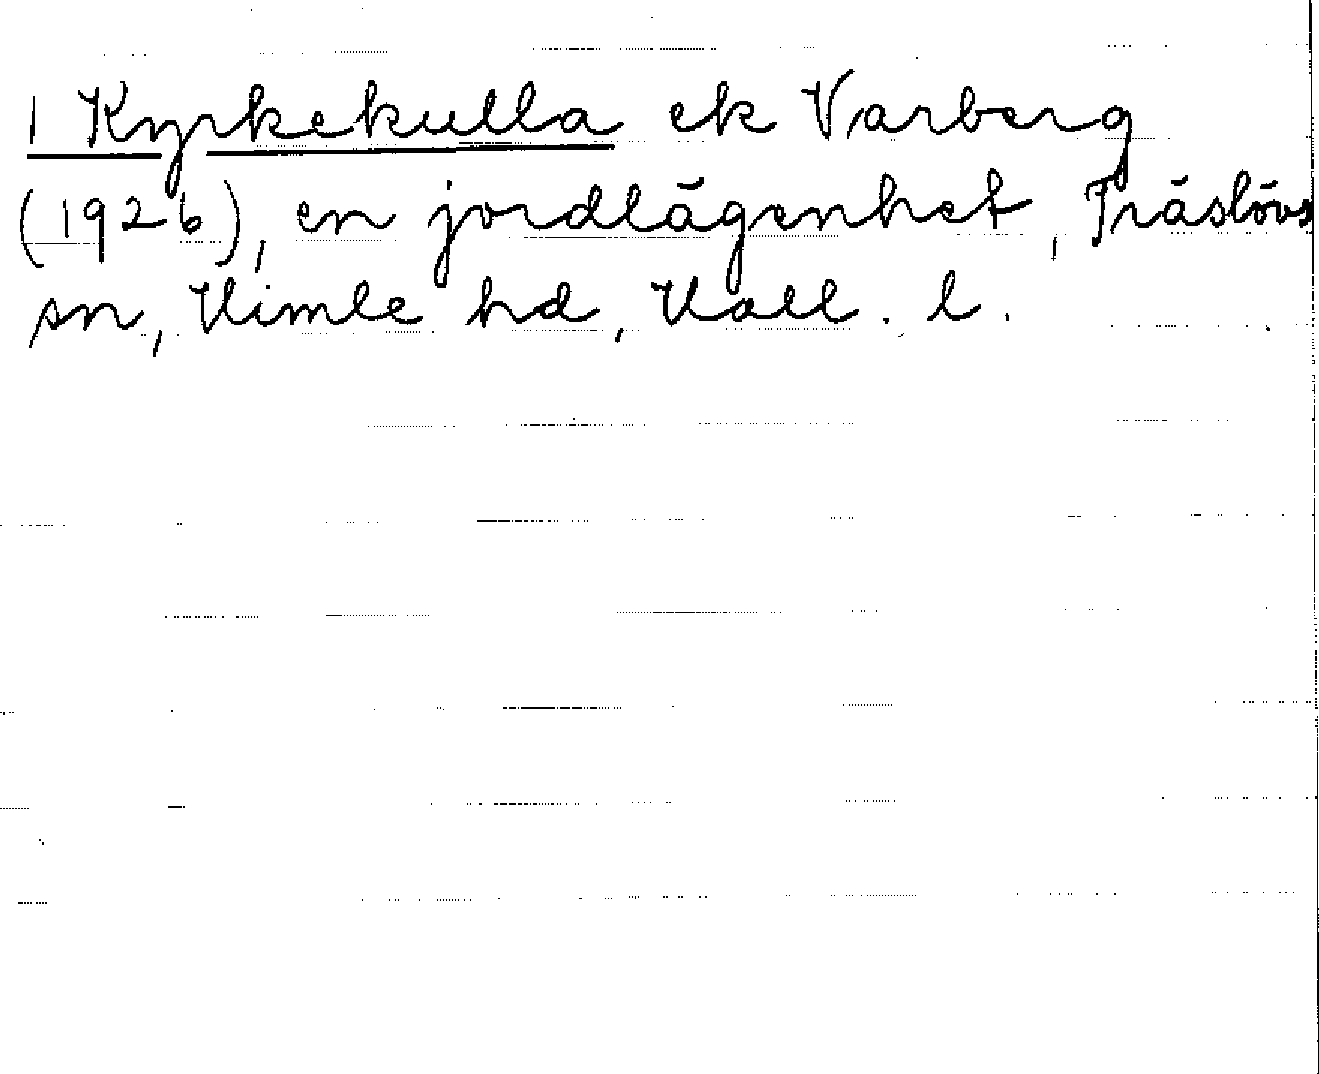 1 Kyrkekulla ek Varberg
(1926), en jordlägenhet, Träslövs
sn, Himle hd, Hall. l.